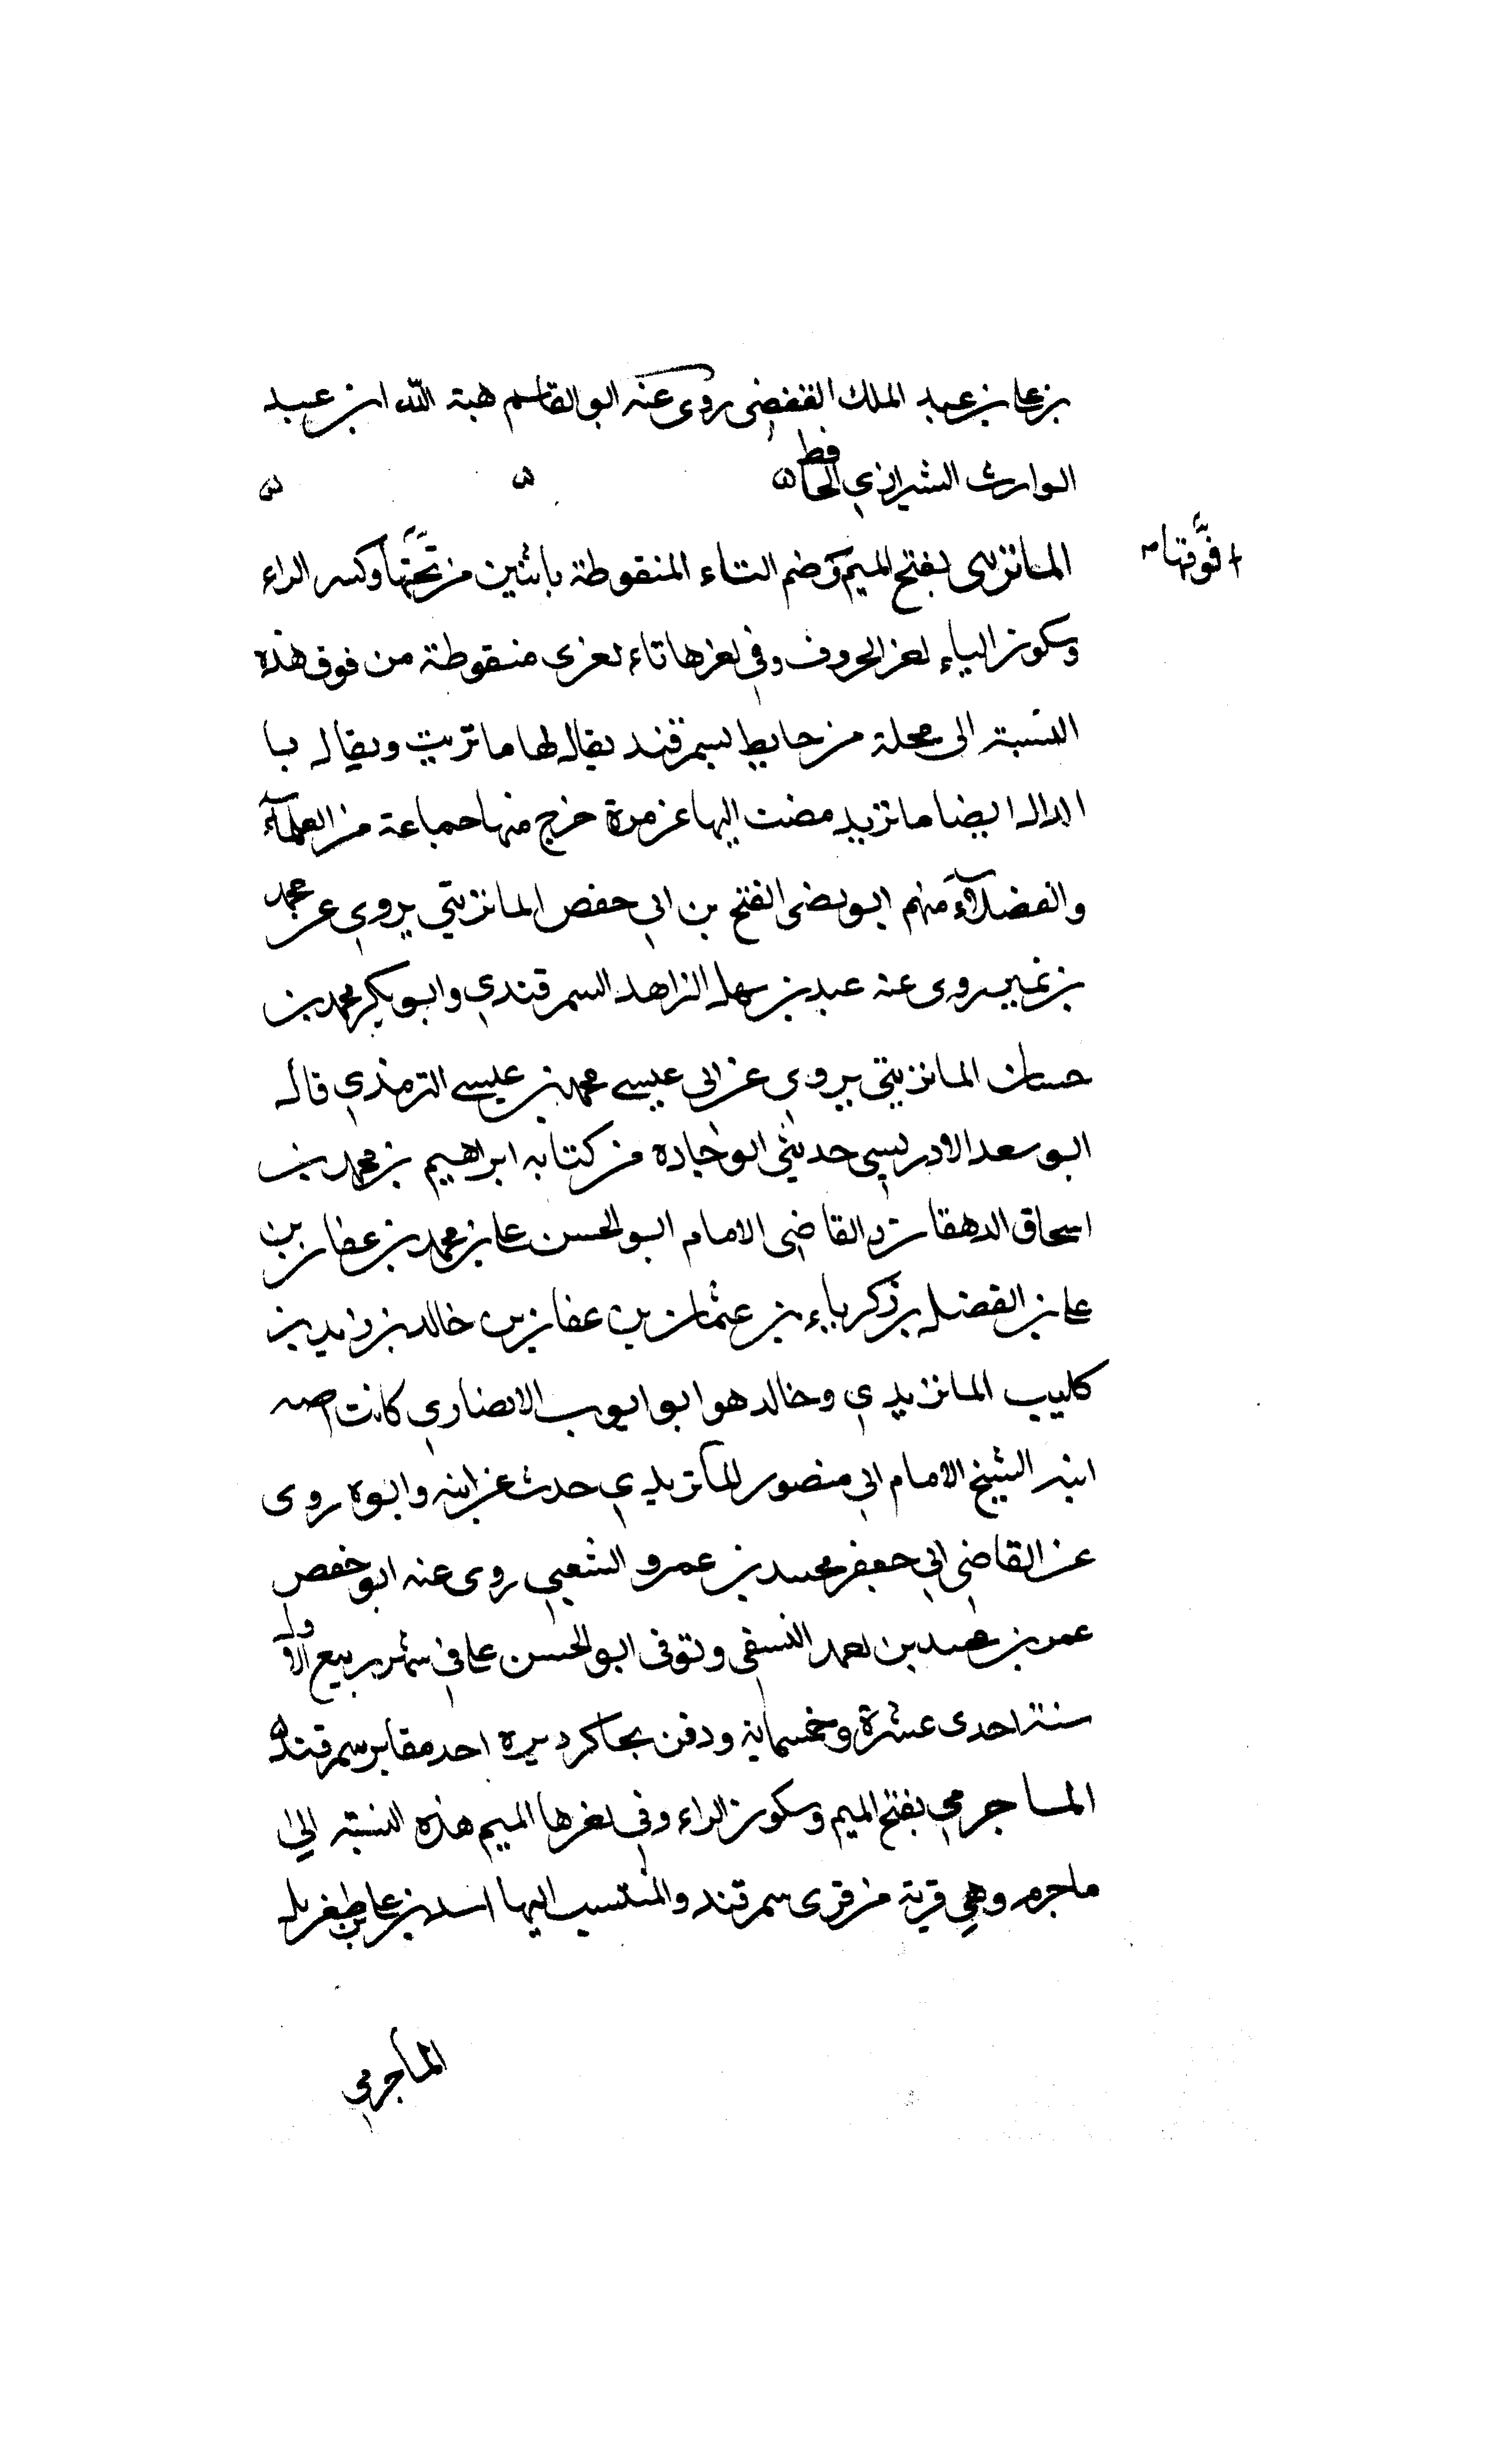 بن علي بن عبد الملك القفصي روى عنه ابو القاسم هبة الله ابن عبد
الوارث الشيرازي الحافظ ه ه ه
الماتريتي بفتح الميم وضم التاء المنقوطة باثنتين من تحتها وكسر الراء
فوقها
وسكون الياء اخر الحروف وفي اخرها تاء اخرى منقوطة من فوق هذه
النسبة الى محلة من حايط سمرقند يقال لها ماتريت ويقال با
الدال ايضا ماتريد مضت اليها غير مرة خرج منها جماعة من العلماء
والفضلاء منهم ابو نصر الفتح بن ابي حفص الماتريتي يروي عن محمد
بن نمير روى عنه عبد بن سهل الزاهد السمرقندي وابو بكر محمد بن
حسان الماتريتي يروي عن ابي عيسى محمد بن عيسى الترمذي قال
ابو سعد الادريسي حدثني الوجادة من كتابه ابراهيم بن محمد بن
اسحاق الدهقان والقاضي الامام ابو الحسن علي بن محمد بن عفان بن
علي بن الفضل بن زكرياء بن عثمان بن عفان بن خالد بن زايد بن
كليب الماتريدي وخالد هو ابو ايوب الانصاري كانت امه
ابنة الشيخ الامام ابي منصور الماتريدي حدث عن ابنه وابوه روى
عن القاضي ابي جعفر محمد بن عمرو الشعبي روى عنه ابو حفص
عمر بن محمد بن احمد النسفي وتوفي ابو الحسن علي في شهر ربيع الاول
سنة احدى عشرة وخمسماية ودفن بجاكرديزه احد مقابر سمرقند ه
الماجرمي بفتح الميم وسكون الراء وفي اخرها الميم هذه النسبة الى
ماجرم وهي قرية من قرى سمرقند والمنتسب اليها اسد بن علي بن طغريل
الماجرمي